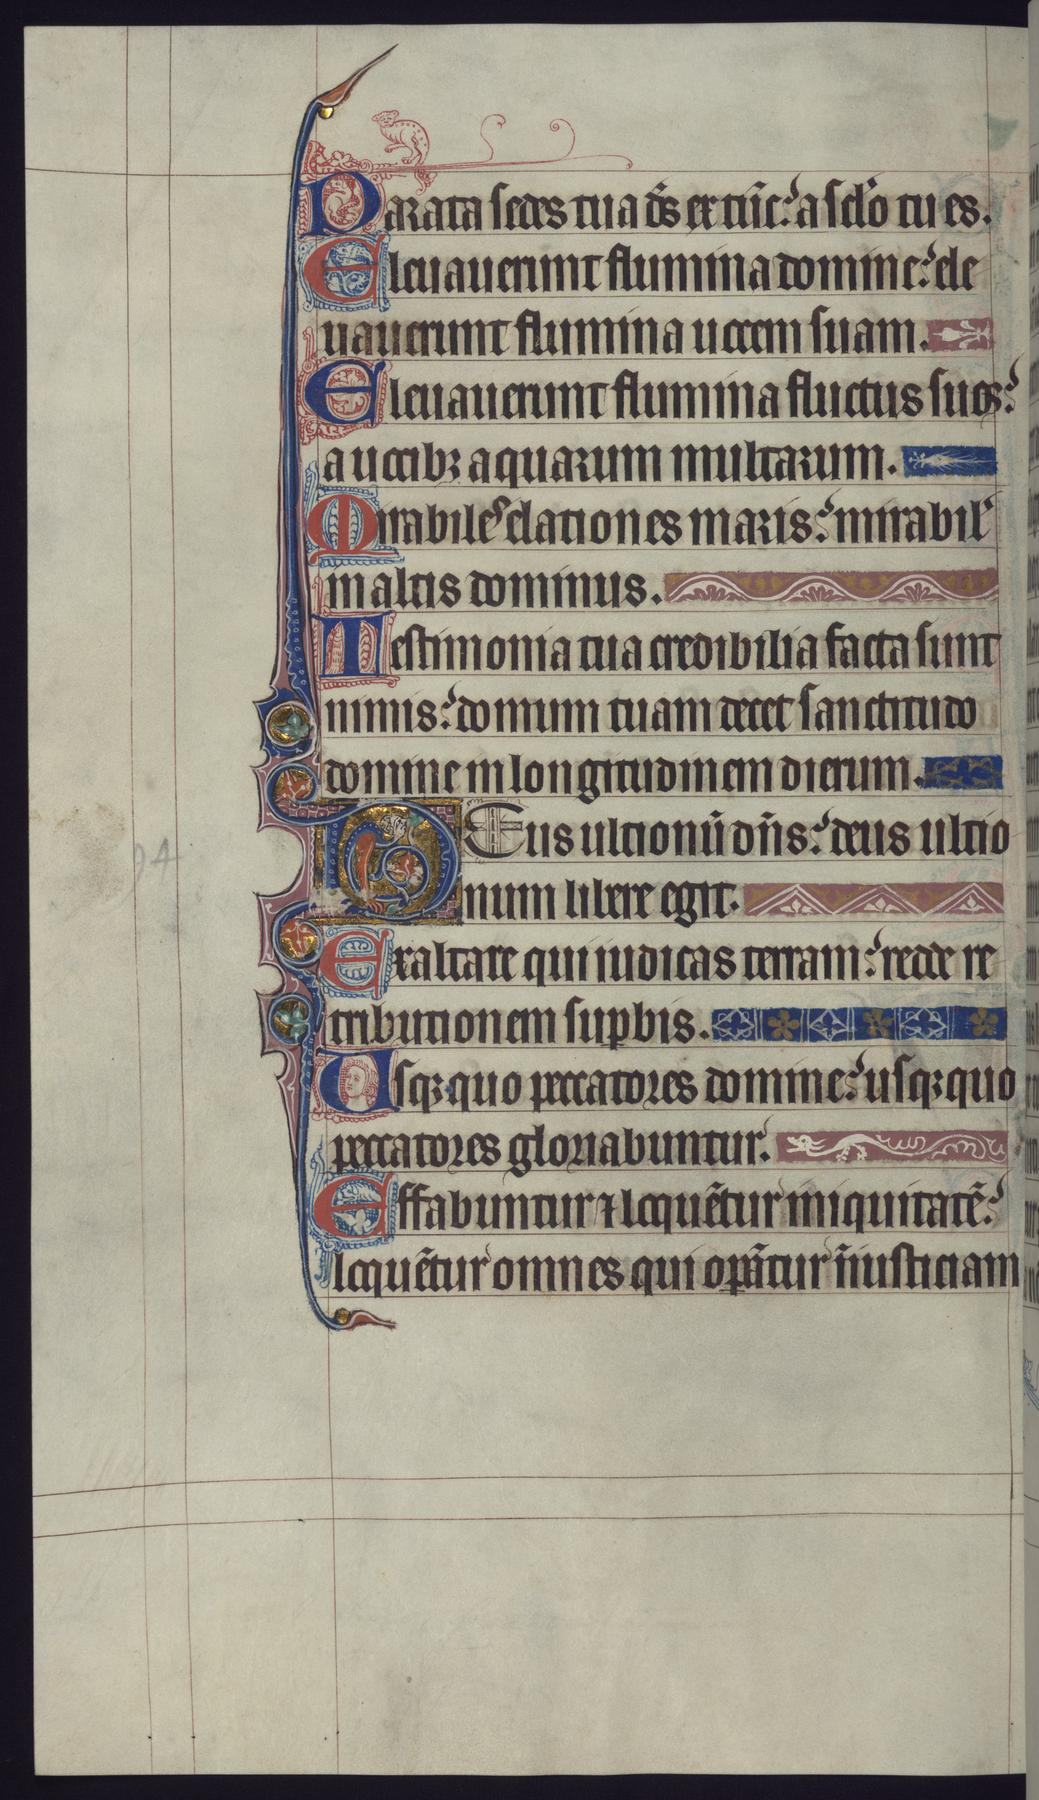 Parata sedes tua d̄s ex tūc: a sclo tu es.
Eleuauerunt flumina domine: ele
uauerunt flumina uocem suam.
Eleuauerunt flumina fluctus suos:
a uocibꝫ aquarum multarum.
Mirabiles elationes maris: mirabil'
in altis dominus.
Testimonia tua credibilia facta sunt
nimis: domum tuam decet sanctitudo
domine in longitudinem dierum.
Deus ultionū dn̄s: deus ultio
num libere egit.
Exaltare qui iudicas terram: redde re
tributionem suꝑbis.
Usqꝫ quo peccatores domine: usqꝫ quo
peccatores gloriabuntur.
Effabuntur ⁊ loquētur iniquitatē:
loquētur omnes qui oꝑātur īiusticiam
94